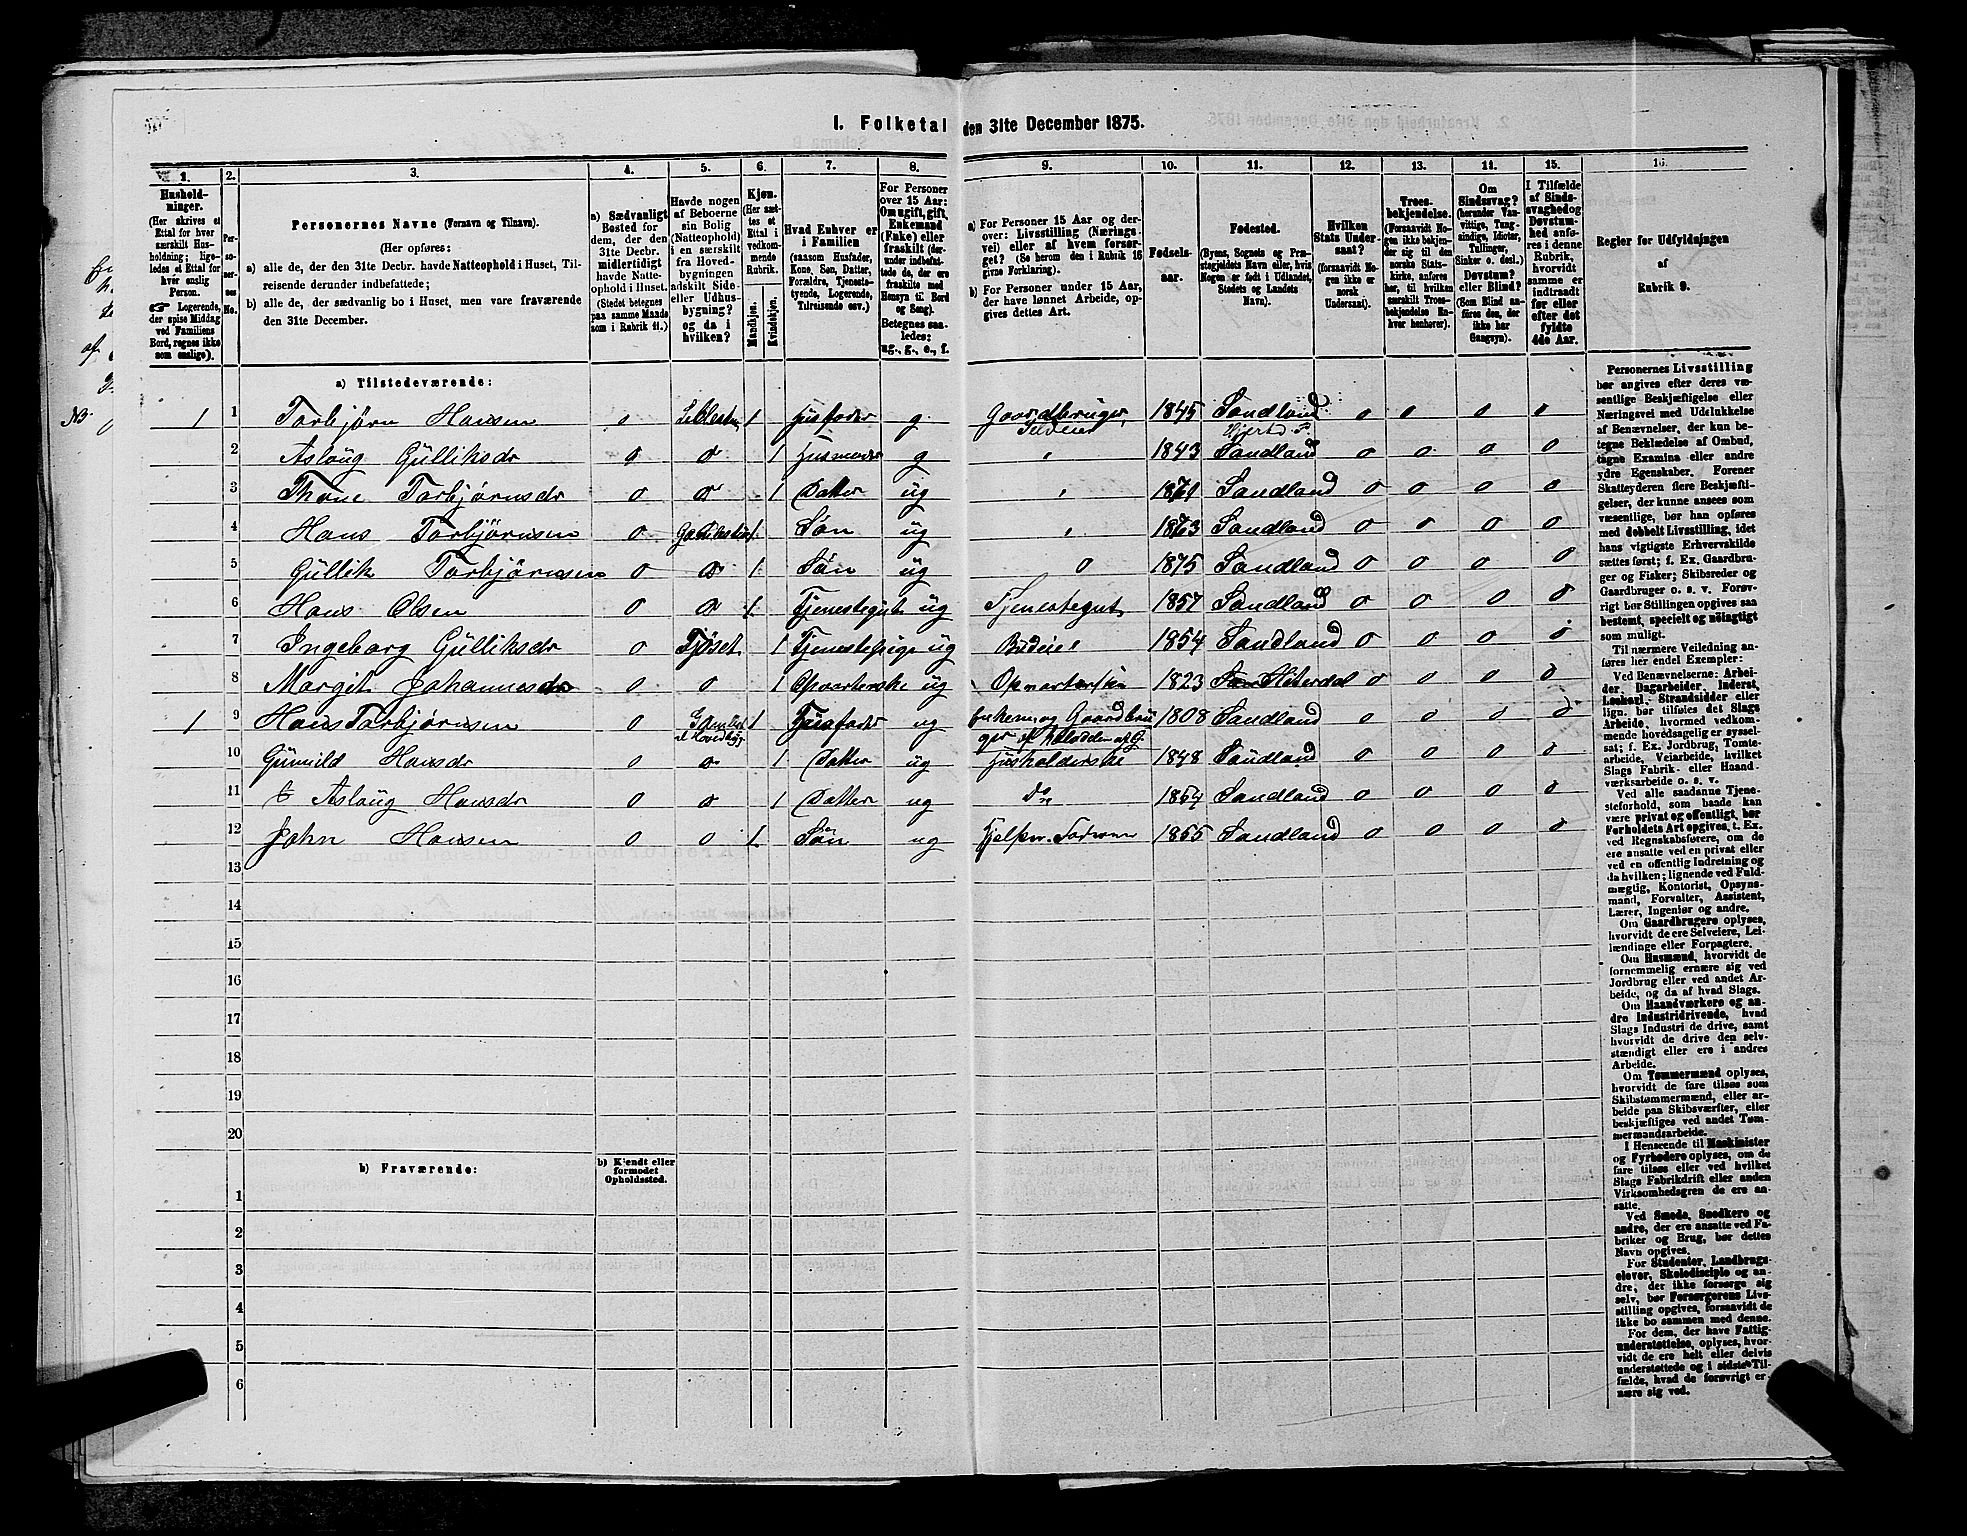 I. Folketal den 31te December 1875.
1. 2. 3. 4. 5. 6. 7. 8. 9. 10. 11. 12. 13. 14. 15. 16.
Hushold-
ninger.
(Her skrives et
Ettal for hver
særskilt Hus-
holdning; lige-
ledes et Ettal for
hver enslig
Person.
Logerende,
der spise Middag
ved Familiens
Bord, regnes ikke
som enslige).
Per-
so-
ner-
nes
No.
Personernes Navne (Fornavn og Tilnavn).
(Her opføres:
a) alle de, der den 31te Decbr. havde Natteophold i Huset, Til-
reisende derunder indbefattede;
b) alle de, der sædvanlig bo i Huset, men vare fraværende
den 31te December.
a) Sædvanligt
Bosted for
dem, der den
31te Decbr.
midlertidigt
havde Natte-
ophold i Huset.
(Stedet betegnes
paa samme Maade
som i Rubrik 11.)
Havde nogen
af Beboerne
sin Bolig
(Natteophold)
i en særskilt
fra Hoved-
bygningen
adskilt Side-
eller Udhus-
bygning?
og da i
hvilken?
Kjøn.
(Her sæt-
tes et
Ettal i
vedkom-
mende
Rubrik.
Mandkjøn.
Kvindekjøn.
Hvad Enhver er
i Familien
(saasom Husfader,
Kone, Søn, Datter,
Forældre, Tjeneste-
tyende, Logerende,
Tilreisende osv.)
For Personer
over 15 Aar:
Om ugift, gift,
Enkemand
(Enke) eller
fraskilt (der-
under indbefat-
tede de, der ere
fraskilte med
Hensyn til Bord
og Seng).
Betegnes saa-
ledes:
ug., g., e., f.
a) For Personer 15 Aar og der-
over: Livsstilling (Nærings-
vei) eller af hvem forsør-
get? (Se herom den i Rubrik 16
givne Forklaring).
b) For Personer under 15 Aar,
der have lønnet Arbeide, op-
gives dettes Art.
Fødsels-
aar.
Fødested.
(Byens, Sognets og Præ-
stegjeldets Navn eller, hvis
Nogen er født i Udlandet,
Stedets og Landets
Navn).
Hvilken
Stats Under-
saat?
(forsaavidt No-
gen ikke er
norsk
Undersaat).
Troes-
bekjendelse.
(Forsaavidt No-
gen ikke bekjen-
der sig til den
norske Stats-
kirke, anføres
her, til hvilken
særskilt Troes-
bekjendelse En-
hver henhører).
Om
Sindssvag?
(herunder Van-
vittige, Tung-
sindige, Idioter,
Tullinger,
Sinker o. desl.).
Døvstum?
eller Blind?
(Som Blind an-
føres den, der
ikke har
Gangsyn).
I Tilfælde
af Sinds-
svaghed og
Døvstum-
hed anfø-
res i denne
Rubrik,
hvorvidt
samme er
indtraadt
før eller
efter det
fyldte
4de Aar.
Regler for Udfyldningen
af
Rubrik 9.
a) Tilstedeværende:
1 1 Torbjörn Hansen o 1 Husfader g Gaardbruger Selveier 1845 Sandland Hjertd. P. o o o o
2 Aslaug Gülliksdr o o 1 Husmoder g " 1843 Sandland o o o o
3 Thone Torbjørnsdr o o 1 Datter ug " 1871 Sandland o o o o
4 Hans Torbjörnsen o 1 Søn ug " 1873 Sandland o o o o
5 Güllik Torbjörnsen o o 1 Søn ug o 1875 Sandland o o o o
6 Hans Olsen o o 1 Tjenestegut ug Tjenestegut 1857 Sandland o o o o
7 Ingeborg Gülliksdr o Fjöset 1 Tjenestepige ug Budeie 1854 Sandland o o o o
8 Margit Johannesdr o o 1 Opvarterske ug Opvarterske 1823 Hiterdal o o o o
1 9 Hans Torbjørnsen o 1 Husfader ug Enkem. og Gaardbru 1808 Sandland o o o o
10 Gunild Hansdr o o 1 Datter ug Husholderske 1848 Sandland o o o o
11 Aslaug Hansdr o o 1 Datter ug Do 1854 Sandland o o o o
12 John Hansen o o 1 Søn ug Hjelper Faderen 1855 Sandland o o o o
13
14
15
16
17
18
19
20
b) Fraværende:
b) Kjendt eller
formodet
Opholdssted.
1
2
3
4
5
6
Personernes Livsstilling
bør angives efter deres væ-
sentlige Beskjæftigelse eller
Næringsvei med Udelukkelse
af Benævnelser, der kun be-
tegne Beklædelse af Ombud,
tagne Examina eller andre
ydre Egenskaber. Forener
Skatteyderen flere Beskjæfti-
gelser, der kunne ansees som
væsentlige, bør han opføres
med dobbelt Livsstilling, idet
hans vigtigste Erhvervskilde
sættes først; f. Ex. Gaardbru-
ger og Fisker; Skibsreder og
Gaardbruger o. s. v. Forøv-
rigt bør Stillingen opgives saa
bestemt, specielt og nöiagtigt
som muligt.
Til nærmere Veiledning an-
føres her endel Exempler:
Ved Benævnelserne: Arbei-
der, Dagarbeider, Inderst,
Løskarl, Strandsidder eller
lign. bør tilføies det Slags
Arbeide, hvormed vedkom-
mende hovedsagelig er syssel-
sat; f. Ex. Jordbrug, Tomte-
arbeide, Veiarbeide, hvilket
Slags Fabrik- eller Haand-
værksarbeide o. s. v.
Ved alle saadanne Tjene-
steforhold, som baade kan
være privat og offentligt, bør
Forholdets Art opgives, t. Ex.
ved Regnskabsførere, om de
ere ansatte ved en privat eller
ved en offentlig Indretning og
da hvilken; lignende ved Fuld-
mægtig, Kontorist, Opsyns-
mand, Forvalter, Assistent,
Lærer, Ingeniør og andre.
Om Gaardbrugere oplyses,
hvorvidt de ere Selveiere, Lei-
lændinge eller Forpagtere.
Om Husmænd, hvorvidt de
fornemmelig ernære sig ved
Jordbrug eller ved andet Ar-
beide, og da af hvad Slags.
Om Haandværkere og an-
dre Industridrivende, hvad
Slags Industri de drive, samt
hvorvidt de drive den selv-
stændigt eller ere i andres
Arbeide.
Om Tømmermænd oplyses,
hvorvidt de fare tilsøs som
Skibstømmermænd, eller ar-
beide paa Skibsværfter, eller
beskjæftiges ved andet Tøm-
mermandsarbeide.
I Henseende til Maskinister
og Fyrbødere oplyses, om de
fare tilsøs eller ved hvilket
Slags Fabrikdrift eller anden
Virksomhedsgren de ere an-
satte.
Ved Smede, Snedkere og
andre, der ere ansatte ved Fa-
briker og Brug, bør dettes
Navn opgives.
For Studenter, Landbrugs-
elever, Skoledisciple og an-
dre, der ikke forsørge sig
selv, bør Forsørgerens Livs-
stilling opgives, forsaavidt de
ikke bo sammen med denne.
For dem, der have Fattig-
understøttelse, oplyses, hvor-
vidt de ere helt eller delvis
understøttede og i sidste Til-
fælde, hvad de forøvrigt er-
nære sig ved.